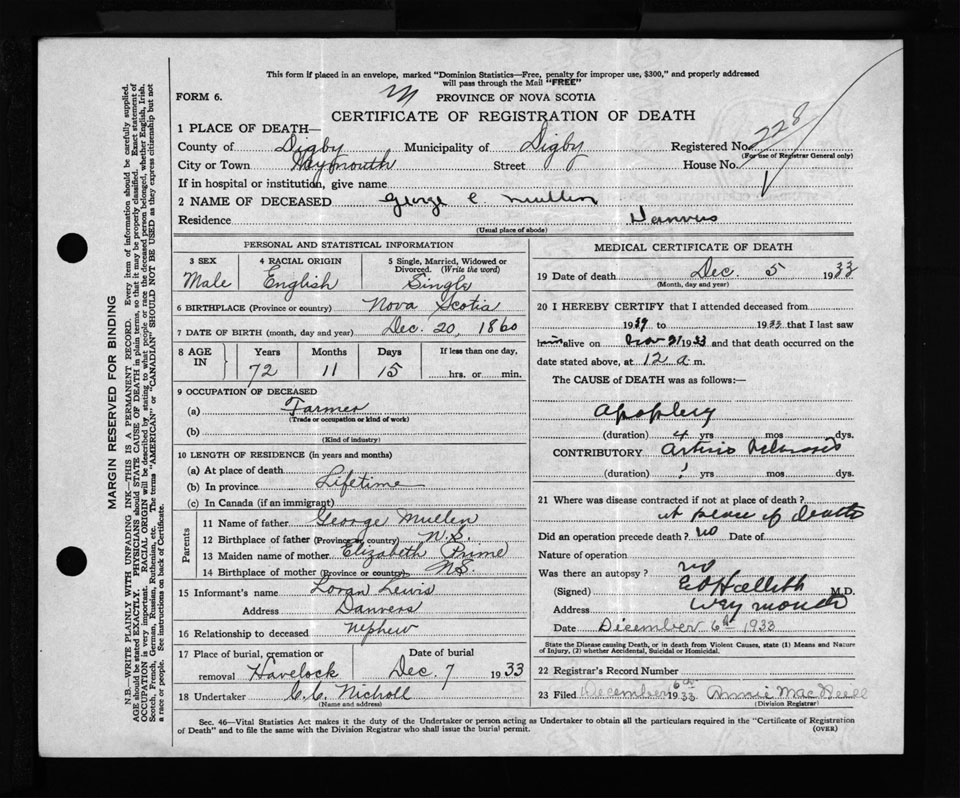 This form if placed in an envelope, marked "Dominion Statistics—Free, penalty for improper use, $300," and properly addressed
will pass through the Mail "FREE"
FORM 6.
PROVINCE OF NOVA SCOTIA
CERTIFICATE OF REGISTRATION OF DEATH
1 PLACE OF DEATH—
County of Digby Municipality of Digby Registered No. 228
(For use of Registrar General only)
City or Town Weymouth Street House No.
If in hospital or institution, give name
2 NAME OF DECEASED George C. Mullen
Residence Danvers
(Usual place of abode)
PERSONAL AND STATISTICAL INFORMATION
3 SEX 4 RACIAL ORIGIN 5 Single, Married, Widowed or
Divorced. (Write the word)
Male English Single
6 BIRTHPLACE (Province or country) Nova Scotia
7 DATE OF BIRTH (month, day and year) Dec. 20, 1860
8 AGE IN Years Months Days If less than one day,
72 11 15 hrs. or min.
9 OCCUPATION OF DECEASED
(a) Farmer
(Trade or occupation or kind of work)
(b)
(Kind of industry)
10 LENGTH OF RESIDENCE (in years and months)
(a) At place of death
(b) In province Lifetime
(c) In Canada (if an immigrant)
Parents
11 Name of father George Mullen
12 Birthplace of father (Province or country) N.S.
13 Maiden name of mother Elizabeth (Prime)
14 Birthplace of mother (Province or country) N.S.
15 Informant's name Loran Lewis
Address Danvers
16 Relationship to deceased nephew
17 Place of burial, cremation or removal Date of burial
Havelock Dec. 7 1933
18 Undertaker C.C. Nicholl
(Name and address)
MEDICAL CERTIFICATE OF DEATH
19 Date of death Dec. 5 1933
(Month, day and year)
20 I HEREBY CERTIFY that I attended deceased from
19 to 19 that I last saw
him alive on Nov 1933 and that death occurred on the
date stated above, at 12 a m.
The CAUSE of DEATH was as follows:—
Apoplexy
(duration) 4 yrs mos dys.
CONTRIBUTORY Arterio Sclerosis
(duration) yrs mos dys.
21 Where was disease contracted if not at place of death?
at place of death
Did an operation precede death? no Date of
Nature of operation
Was there an autopsy? no
(Signed) M.D.
Address Weymouth
Date December 6th 1933
State the Disease causing Death, or in death from Violent Causes, state (1) Means and Nature
of Injury, (2) whether Accidental, Suicidal or Homicidal.
22 Registrar's Record Number
23 Filed December 6th 1933 Annie MacNeill
(Division Registrar)
Sec. 46—Vital Statistics Act makes it the duty of the Undertaker or person acting as Undertaker to obtain all the particulars required in the "Certificate of Registration
of Death" and to file the same with the Division Registrar who shall issue the burial permit. (OVER)
MARGIN RESERVED FOR BINDING
N.B.—WRITE PLAINLY WITH UNFADING INK—THIS IS A PERMANENT RECORD. Every item of information should be carefully supplied.
AGE should be stated EXACTLY. PHYSICIANS should STATE CAUSE OF DEATH in plain terms, so that it may be properly classified. Exact statement of
OCCUPATION is very important. RACIAL ORIGIN will be described by stating to what people or race the deceased person belonged, whether English, Irish,
Scotch, French, German, Russian, Ruthenian, etc. The terms "AMERICAN" or "CANADIAN" SHOULD NOT BE USED as they express citizenship but not
a race or people. See instructions on back of Certificate.